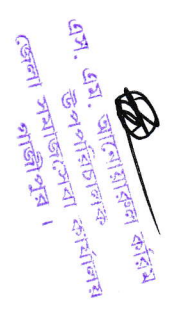 এস. এম. আনোয়ারুল করিম
উপপরিচালক
জেলা সমাজসেবা কার্যালয়
গাজীপুর।